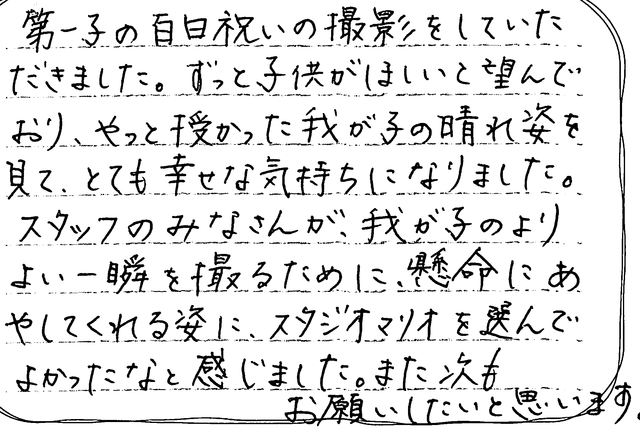 第一子の百日祝いの撮影をしていた
だきました。ずっと子供がほしいと望んで
おり、やっと授かった我が子の晴れ姿を
見て、とても幸せな気持ちになりました。
スタッフのみなさんが、我が子のより
よい一瞬を撮るために、懸命にあ
やしてくれる姿に、スタジオマリオを選んで
よかったなと感じました。また次も
お願いしたいと思います。